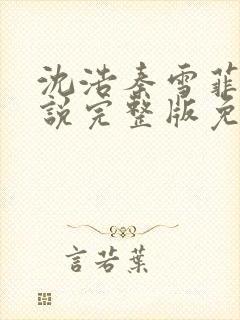 沈浩秦雪菲
說完整版免
言若葉